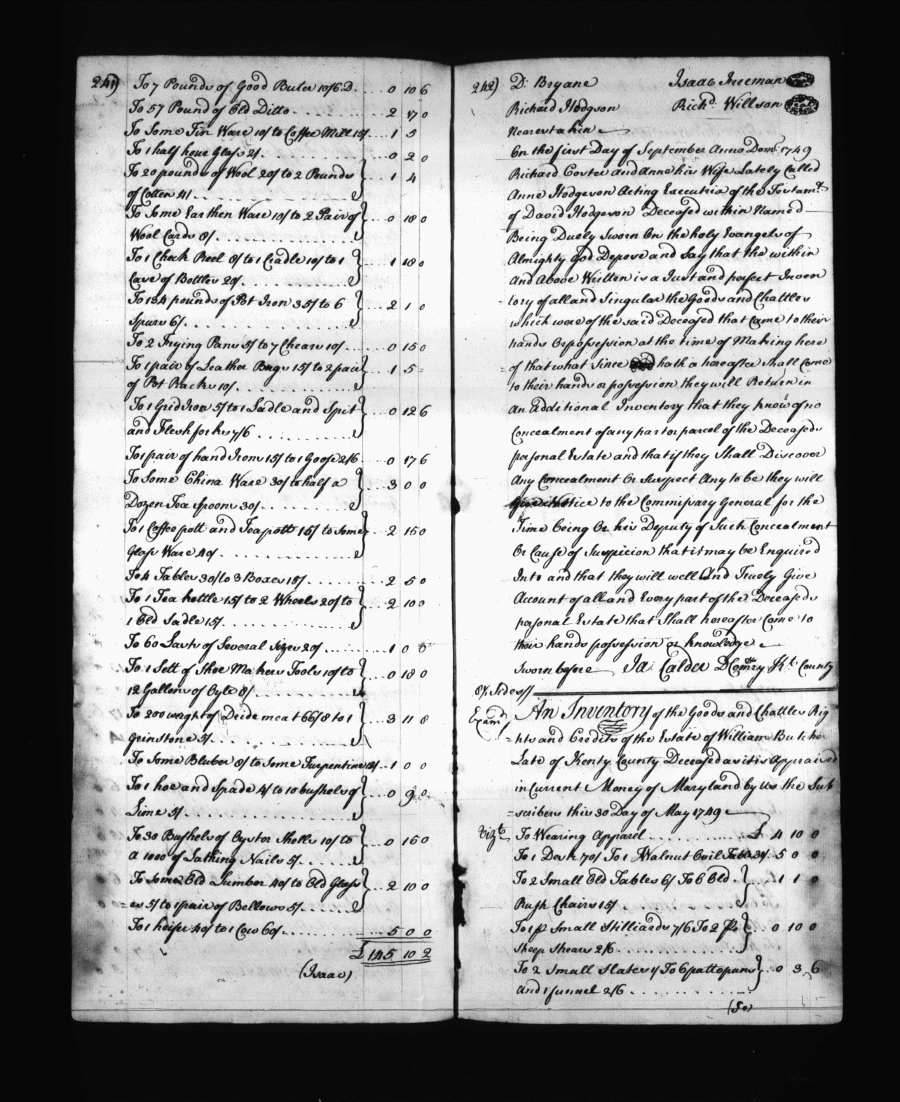 241)
To 7 Pounds of Good Buter 10/6 D. . . 0 10 6
To 57 Pound of Old Ditto . . . 2 17 0
To Some Tin Ware 10/ to Coffee Mill 15/ 1 5
To 1 half hour Glass 2/ . . . 0 2 0
To 20 pounds of Wool 20/ to 2 Pounds } . . 1 4
of Cotten 4/ . . .
To Some Earthen Ware 10/ to 2 Pair of } . . 0 18 0
Wool Cards 8/ . . .
To 1 Check Reel 8/ to 1 Cradle 10/ to 1 } . . 1 18 0
Case of Bottles 20/ . . .
To 184 pounds of Pot Iron 35/ to 6 } . . 2 1 0
Spurs 6/ . . .
To 2 Frying Pans 5/ to 7 Chears 10/ . . . 0 15 0
To 1 pair of Leather Bags 15/ to 2 pair } . . 1 5
of Pot Racks 10/ . . .
To 1 Grid Iron 5/ to 1 Sadle and Spit } . . 0 12 6
and Flesh forks 7/6 . . .
To 1 pair of hand Irons 15/ to 1 Goose 2/6 . . 0 17 6
To Some China Ware 30/ to half a } . . 3 0 0
Dozen Tea Spoons 30/ . . .
To 1 Coffee pott and Tea pott 15/ to Some } 2 15 0
Glass Ware 40/ . . .
To 4 Tables 30/ to 3 Boxes 15/ . . . 2 5 0
To 1 Tea kettle 15/ to 2 Wheels 20/ to } . . 2 10 0
1 Old Sadle 15/ . . .
To 60 Lasts of Several Sizes 20/ . . . 1 0 0
To 1 Sett of Shoe Makers Tools 10/ to } . . 0 18 0
12 Gallons of Oyle 8/ . . .
To 200 weight of Deide meat 66/8 to 1 } . . 3 11 8
Grinstone 5/ . . .
To Some Bluber 8/ to Some Turpentine 12/ 1 0 0
To 1 hoe and Spade 4/ to 10 bushels of } . . 0 9 0
Lime 5/ . . .
To 30 Bushels of Oyster Shells 10/ to } . . 0 16 0
a 1000 of Lathing Nails 5/ . . .
To Some Old Lumber 40/ to Old Glass } . . 2 10 0
es 5/ to 1 pair of Bellows 5/ . . .
To 1 heifer 40/ to 1 Cow 60/ . . . 5 0 0
£ 145 10 2
(Isaac)
242) D: Bryane Isaac Freeman
Richard Hodgson Richd. Willson
Nearest a kin
On the first Day of September Anno Dom: 1749
Richard Porter and Anne his Wife Lately Called
Anne Hodgeson Acting Executrix of the Testamt.
of David Hodgeson Deceased within Named
Being Duely Sworn On the holy Evangels of
Almighty God Depose and Say that the within
And Above Written is a Just and perfect Inven
-tory of all and Singular the Goods and Chattles
which were of the said Deceased that Came to their
hands Or possession at the time of Making here
of that what Since hath or hereafter Shall Come
to their hands or possession they will Return in
An Additional Inventory that they know of no
Concealment of any part or parcel of the Deceaseds
personal Estate and that if they Shall Discover
Any Concealment Or Suspect Any to be they will
Give Notice to the Commissary General for the
Time being Or his Deputy of Such Concealment
Or Cause of Suspicion that it may be Enquired
Into and that they will well And Truely Give
Account of all and Every part of the Deceaseds
personal Estate that Shall hereafter Come to
their hands possession or knowledge
Sworn before Ja: Calder DComry Kt. County
8½ Sides//
Examd. An Inventory of the Goods and Chattles Rig
-hts and Credits of the Estate of William Butcher
Late of Kenty County Deceased as it is Appraised
in Current Money of Maryland by Us the Sub
-scribers this 30 Day of May 1749
Vizt. To Wearing Apparel . . . £ 4 10 0
To 1 Desk 70/ To 1 Walnut Ovil Table 30/ 5 0 0
To 2 Small Old Tables 6/ To 6 Old } . . 1 1 0
Rush Chairs 15/
To 1 ps Small Stilliards 7/6 To 2 Ps } . . 0 10 0
Sheep Shears 2/6 . . .
To 2 Small Slaters 1/ To 6 pattepans } . . 0 3 6
and 1 funnel 2/6 . . .
(So)